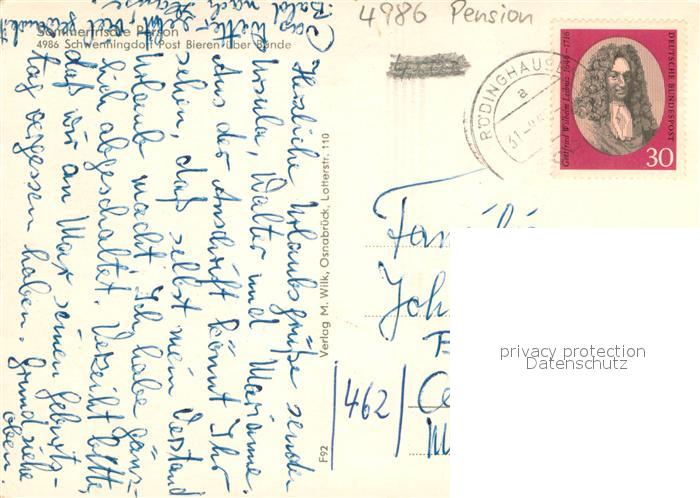 4986 Pension
Sommerfrische Person
4986 Schwenningdorf Post Bieren über Bünde
Herzliche Urlaubsgrüße senden
Ursula, Walter und Marianne.
Aus der Anschrift könnt Ihr
sehen, daß selbst mein Verstand
Urlaub macht. Ich habe gänz-
lich abgeschaltet. Verzeiht bitte,
daß wir an Max seinen Geburts-
tag vergessen haben. Grund siehe
oben.
Verlag M. Wilk, Osnabrück, Lotterstr. 110
F92
RÖDINGHAUSE
a
31
Gottfried Wilhelm Leibniz 1646-1716
DEUTSCHE BUNDESPOST
30
Familie
Joh
462
privacy protection
Datenschutz